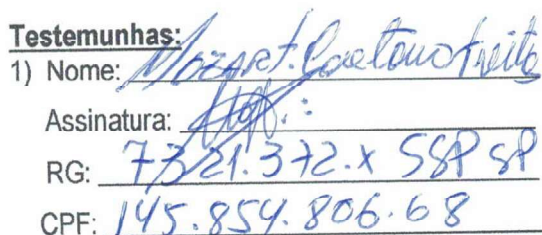 Testemunhas:
1) Nome: Mozart Caetano Freitas
Assinatura:
RG: 7321.372.x SSP SP
CPF: 145.854.806.68